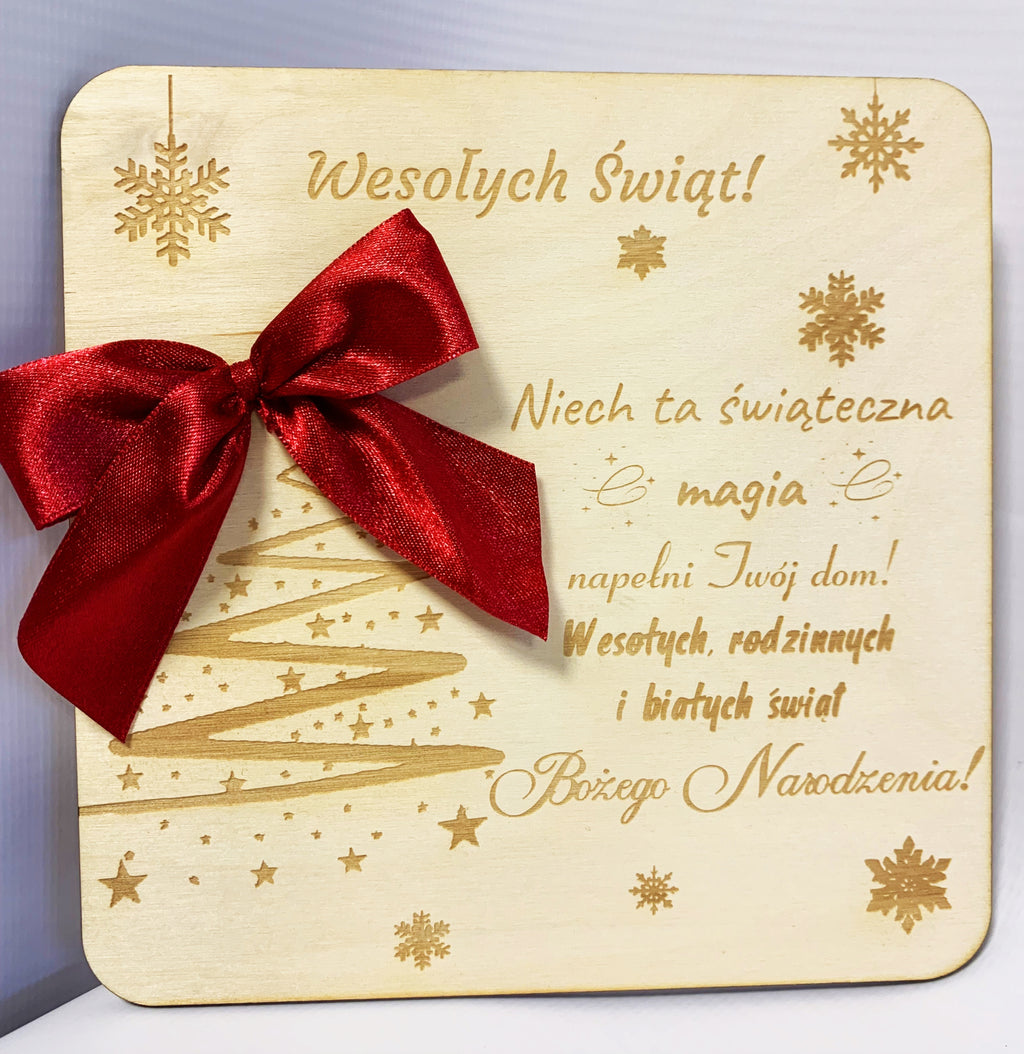 Wesołych Świąt!
Niech ta świąteczna
magia
napełni Twój dom!
Wesołych, rodzinnych
i białych świąt
Bożego Narodzenia!